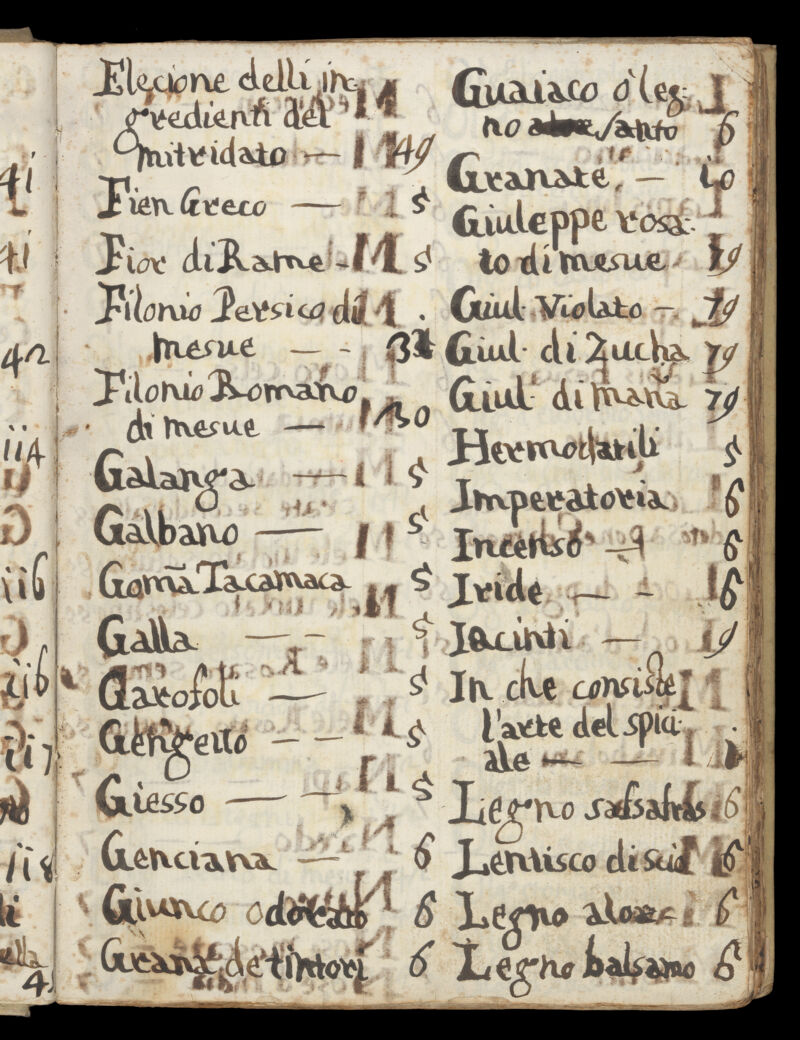 Elecione delli in-
gredienti del
mitridato — 49
Fien Greco — 5
Fior di Rame - 5
Filonio Persico di
mesue — - 32
Filonio Romano
di mesue — 30
Galanga — 5
Galbano — 5
Gom̃a Tacamaca 5
Galla — - 5
Garofoli — 5
Gengero — - 5
Giesso — — 5
Genciana — 6
Giunco odorato 6
Grana de tintori 6
Guaiaco ò leg-
no santo 6
Granate — io
Giuleppe rosa-
to di mesue 79
Giul. Violato — 79
Giul. di Zucha 79
Giul. di mañа 79
Hermodatili 5
Imperatoria 6
Incenso — 6
Iride — - 6
Iacinti — 9
In che consiste
l'arte del spici-
ale — —
Legno salsafras 6
Lentisco di scio 6
Legno aloe 6
Legno balsamo 6
41
41
42
iiA
ii6
ii6
ii7
ii8
li
ella
4